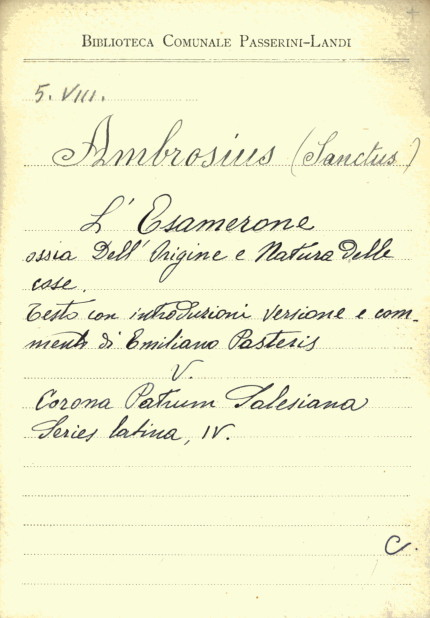 BIBLIOTECA COMUNALE PASSERINI-LANDI
5. VIII.
Ambrosius (Sanctus)
L' Esamerone
ossia Dell' Origine e Natura delle
cose.
Testo con introduzioni versione e com-
mento di Emiliano Pasteris
V.
Corona Patrum Salesiana
Series latina, IV.
C.